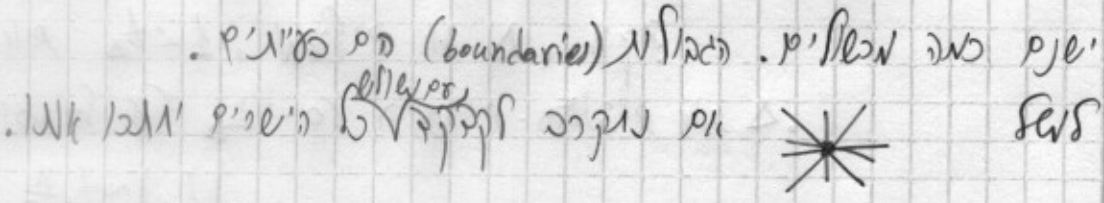 ישנם כמה מכשולים. הגבולות (boundaries) הם בעייתים.
למשל אם נתקרב לקדקד עם משולש כל הישרים יחתכו אותו.